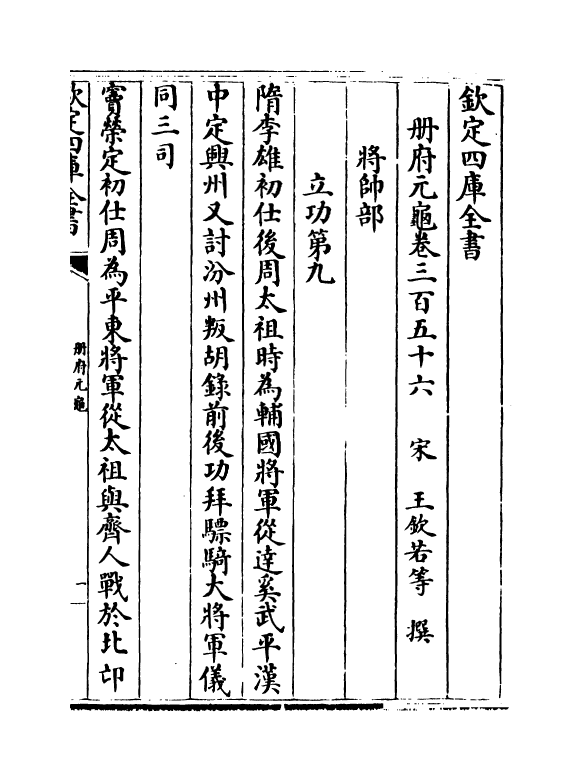 欽定四庫全書
册府元龜卷三百五十六 宋 王欽若等 撰
將帥部
立功第九
隋李雄初仕後周太祖時為輔國將軍從達奚武平漢
中定興州又討汾州叛胡錄前後功拜驃騎大將軍儀
同三司
竇榮定初仕周為平東將軍從太祖與齊人戰於北邙
欽定四庫全書
册府元龜
一